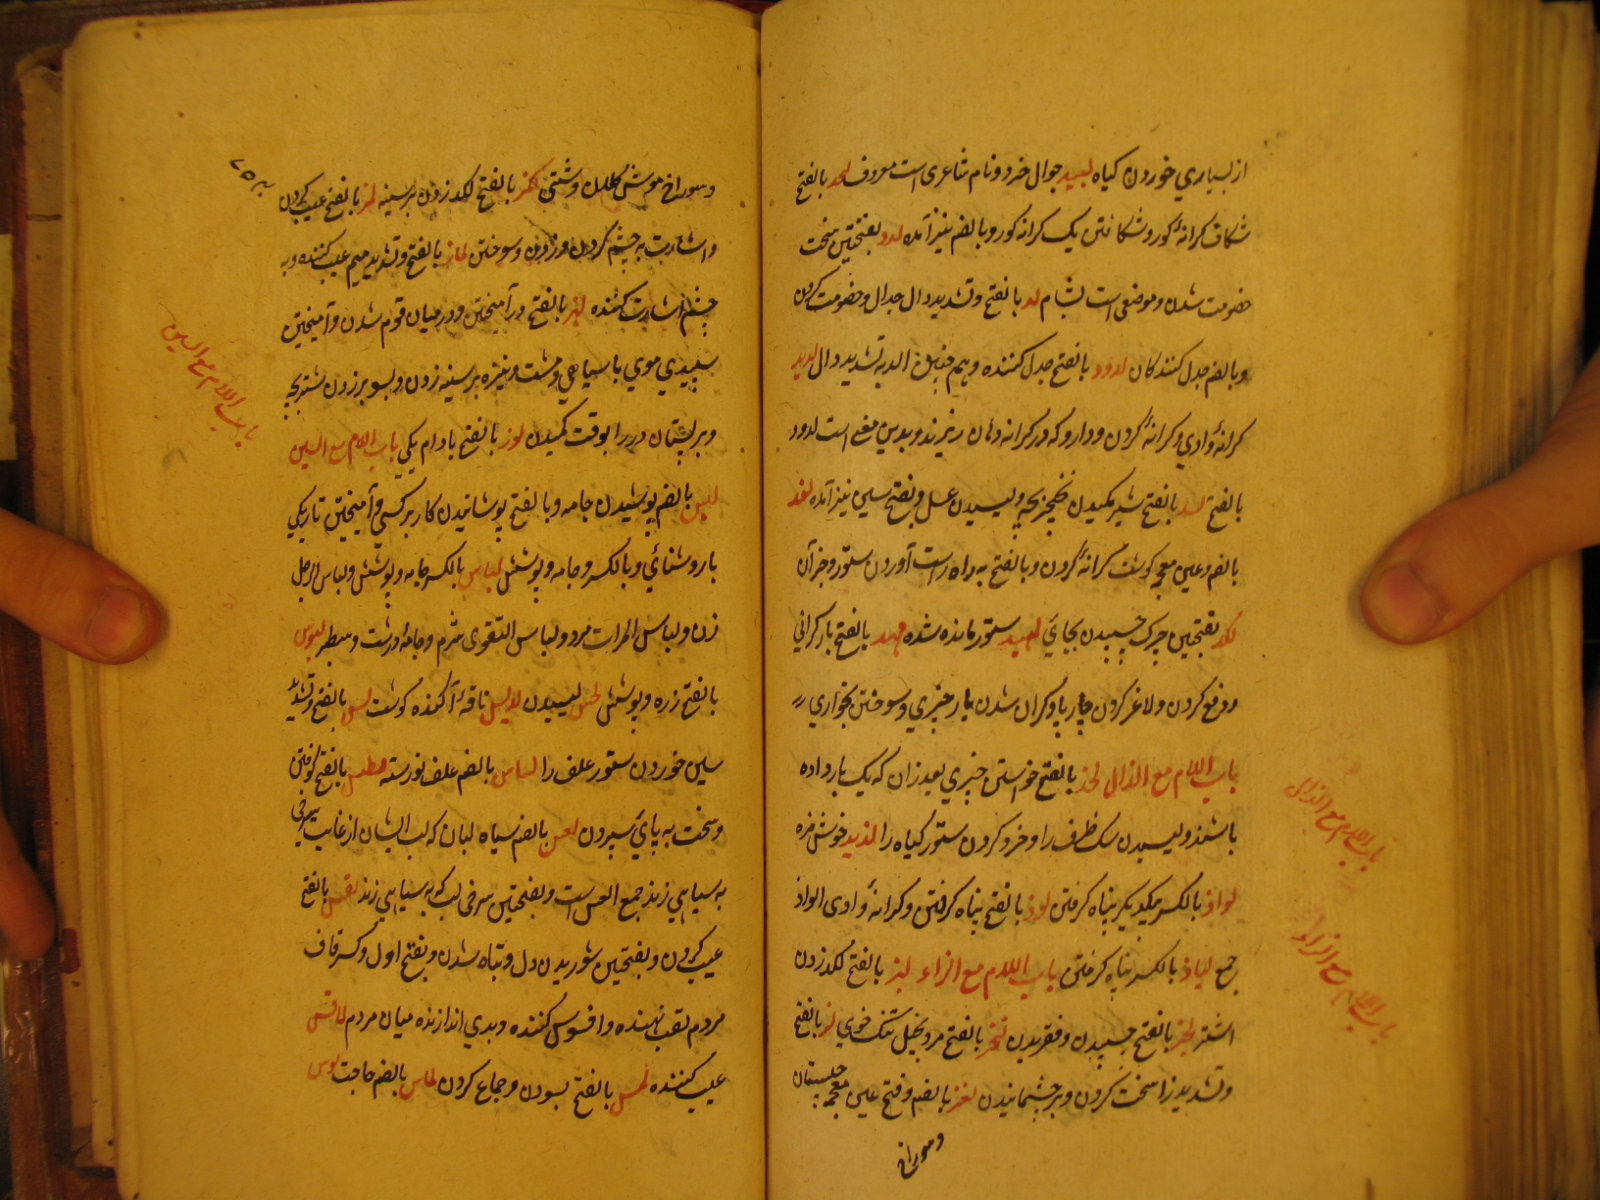 از بسیاری خوردن کیاه لبید جوال خرد و نام شاعری است معروف لحد بالفتح
شکاف کرانهٔ کور و شکافتن یک کرانه کور و بالضم نیز آمده لدد بفتحتین سخت
خصومت شدن و موضعی است بشام لد بالفتح و تشدید دال جدال و خصومت کردن
و بالضم جدل کنندکان لدود بالفتح جدل کننده و هم چنین الد به تشدید دال لدید
کرانهٔ وادی و کرانهٔ کردن و دارو که در کرانه دهان ریزند و بدین معنی است لدود
بالفتح لسد بالفتح شیر مکیدن بچه و لیسیدن عسل و بفتح سین نیز آمده لغد
بالضم و غین معجمه کوشت کرانهٔ کردن و بالفتح به راه راست آوردن ستور و جز آن
لکد بفتحتین چرک چسپیدن بجائی لهید ستور مانده شده لهد بالفتح بار کرانی
و دفع کردن و لاغر کردن چارپا و کران شدن بار چیزی و سوختن بخواری
باب اللام مع الذال لجذ بالفتح خواستن چیزی بعد زان که یک بار داده
باشند و لیسیدن سک ظرف را و خرد کردن ستور کیاه را لذیذ خوش مزه
لواذ بالکسر بیکدیکر پناه کرفتن لوذ بالفتح پناه کرفتن و کرانهٔ وادی الواذ
جمع لیاذ بالکسر پناه کرفتن باب اللام مع الزاء لبز بالفتح لکد زدن
اشتر لحز بالفتح چسپیدن و فقر بدین لحز بالفتح مرد بخیل تنک خوی لز بالفتح
و تشدید زا سخت کردن و بر چشمانیدن لغز بالضم و فتح غین معجمه چیستان
و سوراخ
باب اللام مع الذال
باب اللام مع الزاء
و سوراخ موش کلان و شتی لکز بالفتح لکد زدن بر سینه لمز بالفتح عیب کردن
و اشارت به چشم کردن و زدن و سوختن لماز بالفتح و تشدید میم عیب کننده و به
چشم اشارت کننده لهز بالفتح در آمیختن و در میان قوم شدن و آمیختن
سپیدی موی با سیاهی و مشت و نیزه بر سینه زدن و بسو بر زدن شتر بچه
و بر پستان در را بوقت مکیدن لوز بالفتح بادام یکی باب اللام مع السین
لبس بالضم پوشیدن جامه و بالفتح پوشانیدن کار بر کسی و آمیختن تاریکی
با روشنائی و بالکسر و جامه و پوشش لباس بالکسر جامه و پوشش و لباس الرجل
زن و لباس المرات مرد و لباس التقوی شرم و جامهٔ درشت و سطبر لبوس
بالفتح زره و پوشش لحس لیسیدن لدیس ناقهٔ آکنده کوشت لس بالفتح و تشدید
سین خوردن ستور علف را لساس بالضم علف نورسته لطس بالفتح کوفتن
و سخت به پای سپردن لعس بالضم سیاه لبان که لب ایشان از غایت سرخی
به سیاهی زند جمع العس است و بفتحتین سرخی لب که به سیاهی زند لقس بالفتح
عیب کردن و بفتحتین شوریدن دل و تباه شدن و بفتح اول و کسر قاف
مردم لقب نهنده و افسوس کننده و بدی اندازنده میان مردم لاقس
عیب کننده لمس بالفتح بسودن و جماع کردن لماس بالضم حاجت لوس
باب اللام مع السین